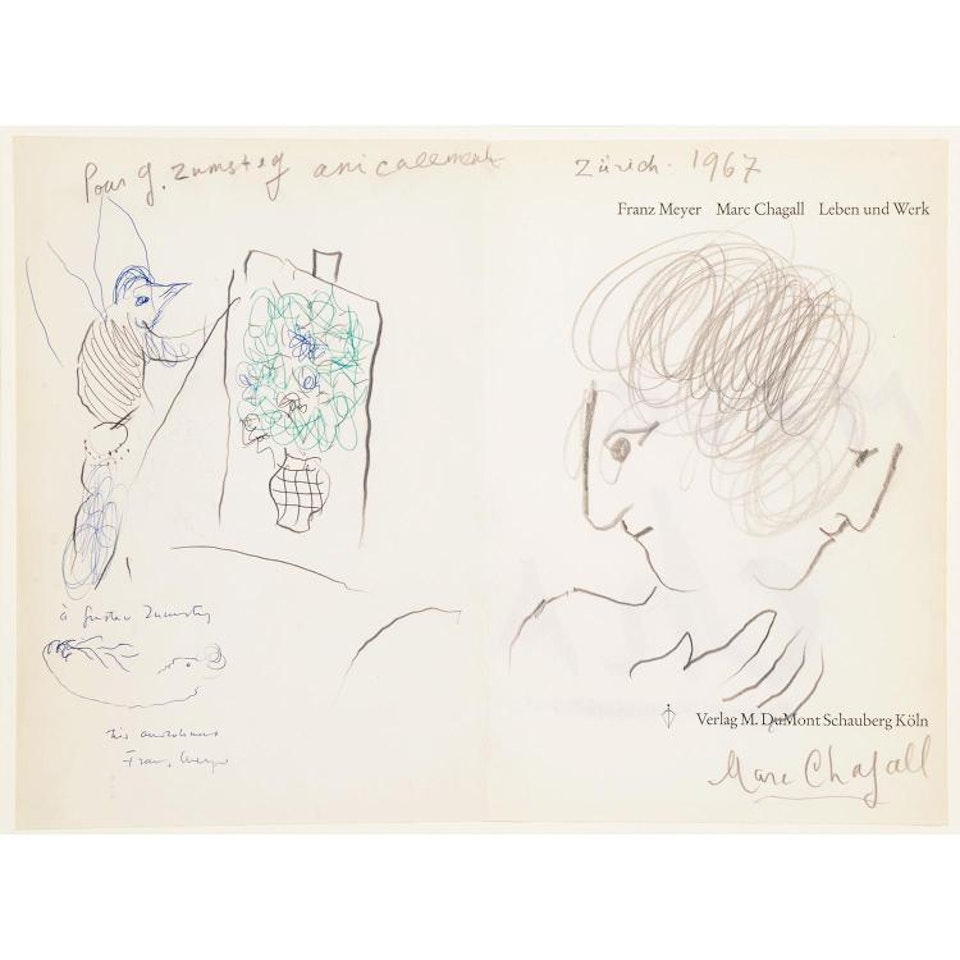 Pour G. Zumsteg amicalement Zürich. 1967
Franz Meyer Marc Chagall Leben und Werk
à Gustav Zumsteg
très amicalement
Franz Meyer
Verlag M. DuMont Schauberg Köln
Marc Chagall